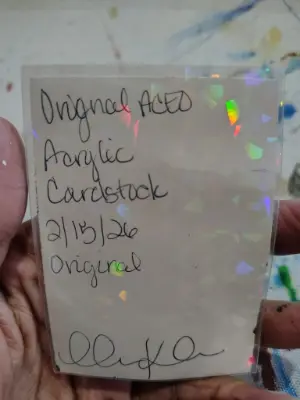 Original ACEO
Acrylic
Cardstock
2/15/26
Original